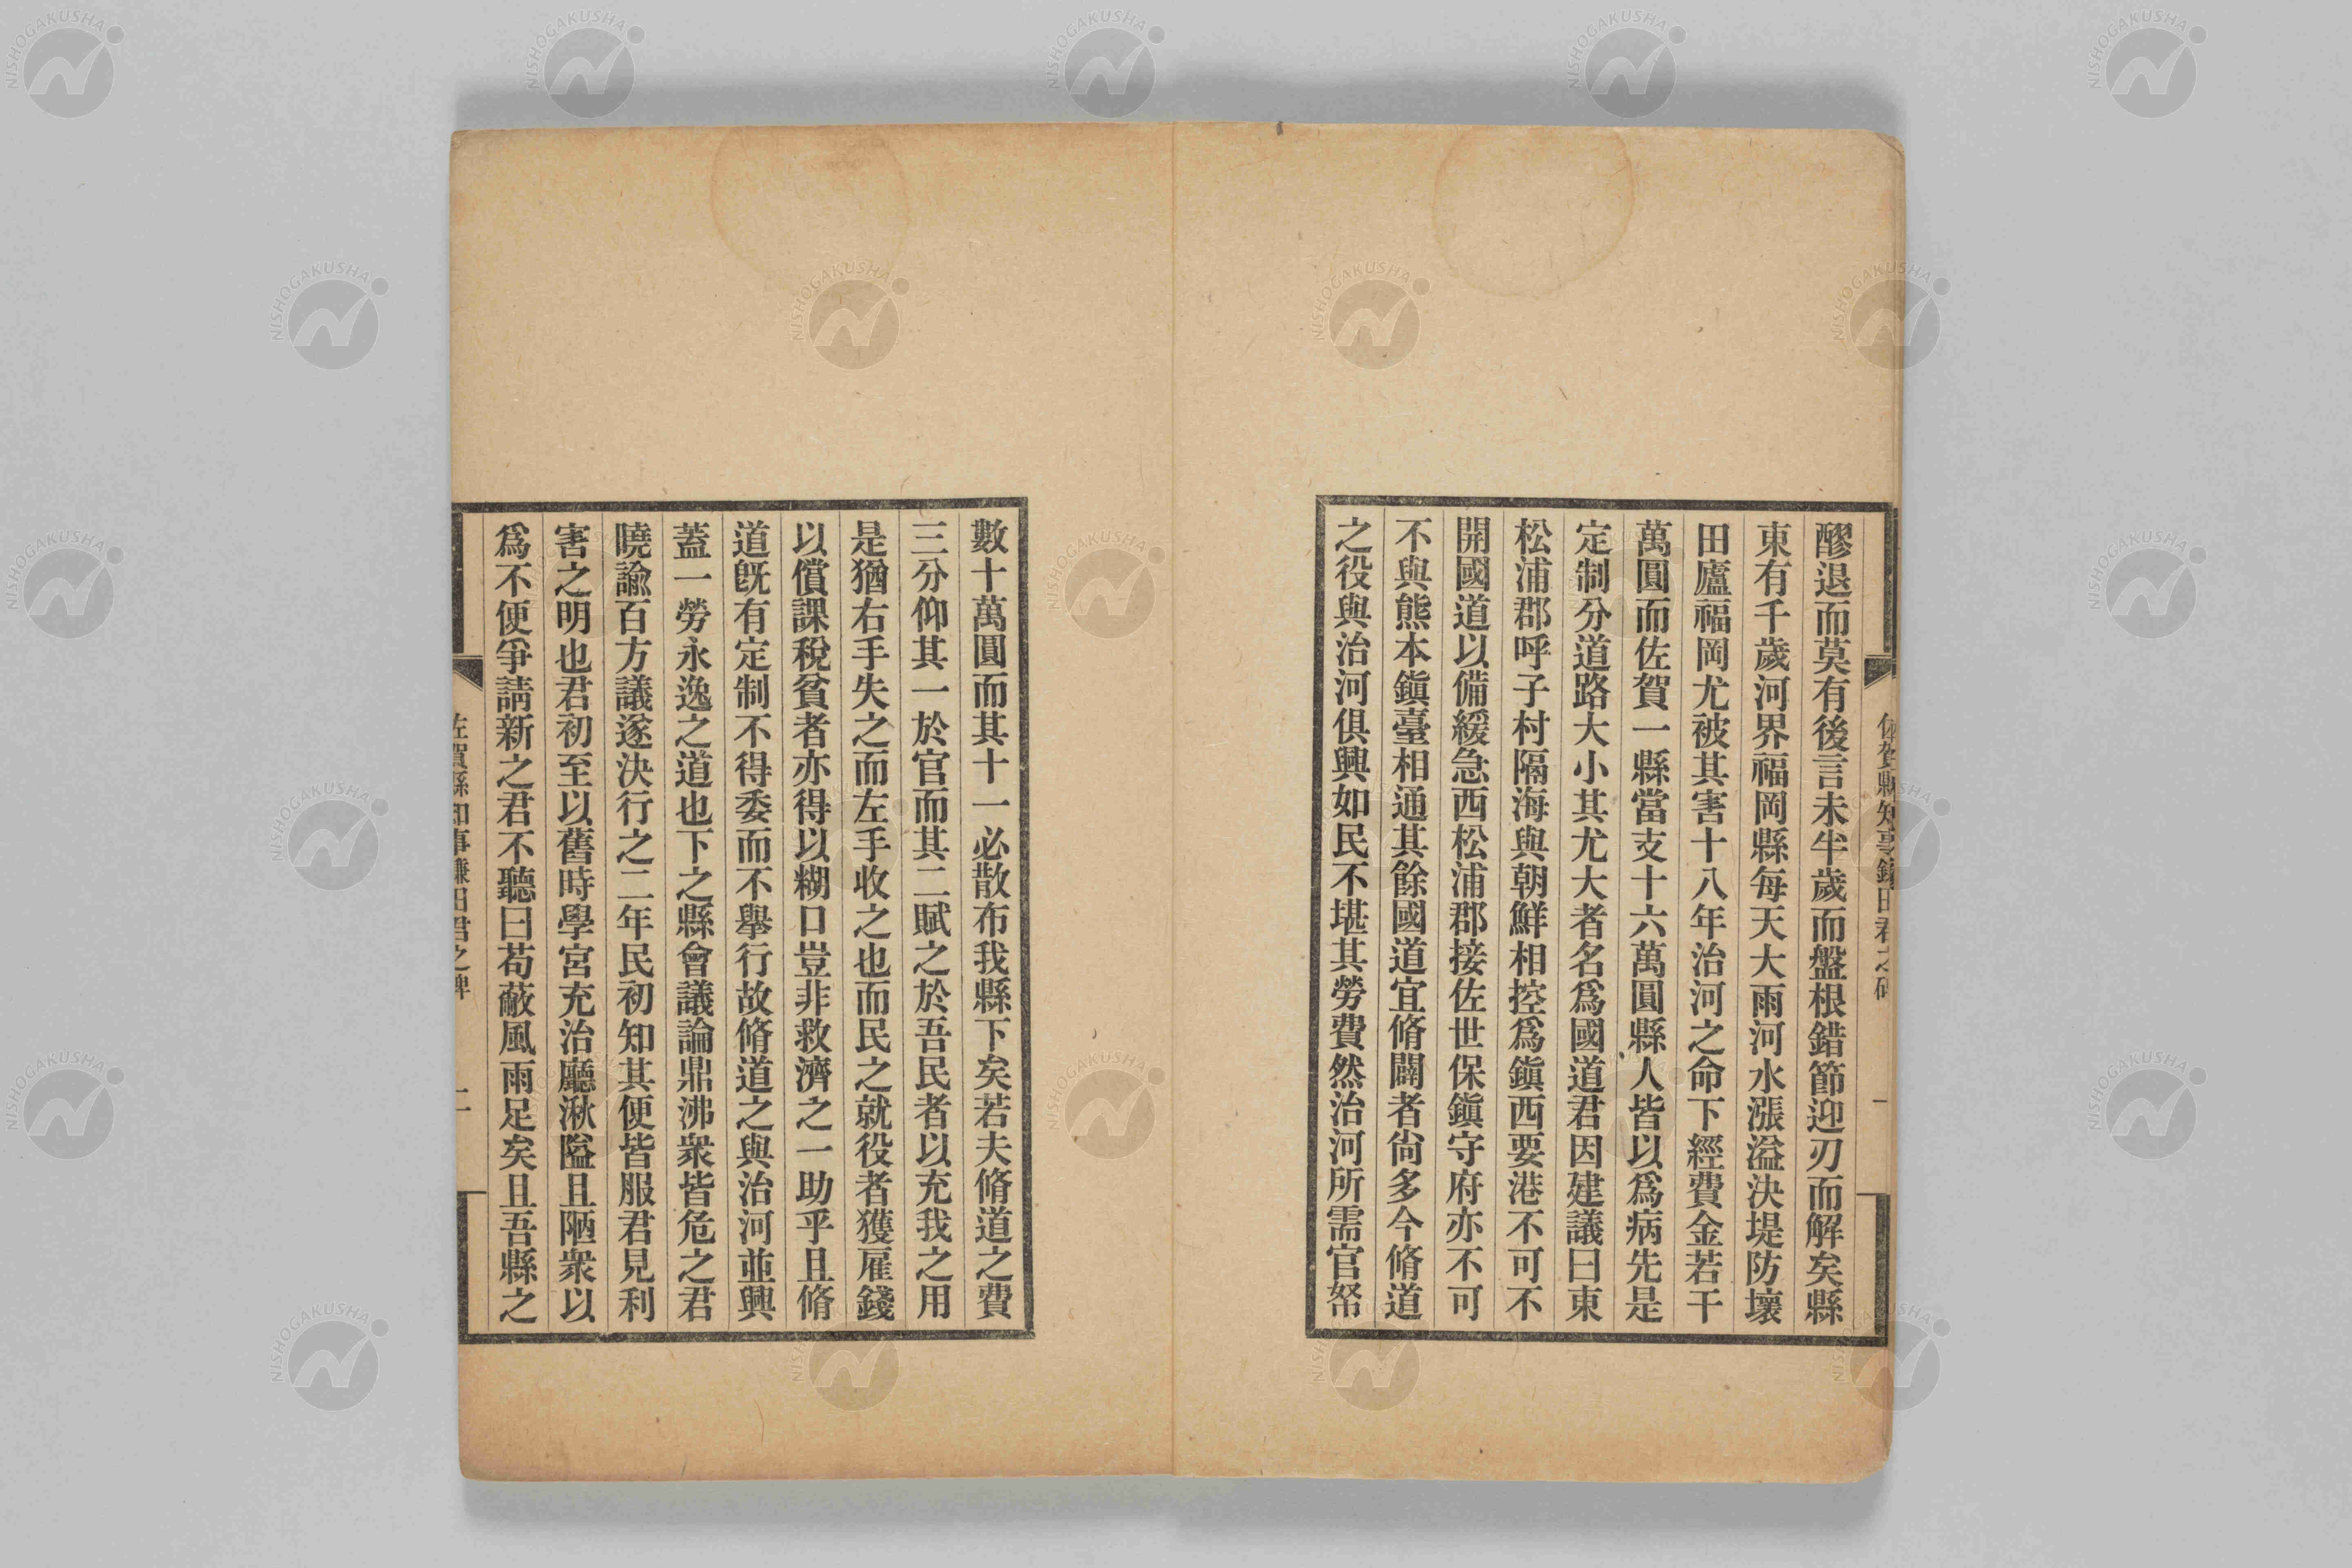 佐賀縣知事鎌田君之碑
一
醪退而莫有後言未半歲而盤根錯節迎刃而解矣縣
東有千歲河界福岡縣每天大雨河水漲溢決堤防壞
田廬福岡尤被其害十八年治河之命下經費金若干
萬圓而佐賀一縣當支十六萬圓縣人皆以爲病先是
定制分道路大小其尤大者名爲國道君因建議曰東
松浦郡呼子村隔海與朝鮮相控爲鎭西要港不可不
開國道以備緩急西松浦郡接佐世保鎭守府亦不可
不與熊本鎭臺相通其餘國道宜脩闢者尙多今脩道
之役與治河俱興如民不堪其勞費然治河所需官帑
數十萬圓而其十一必散布我縣下矣若夫脩道之費
三分仰其一於官而其二賦之於吾民者以充我之用
是猶右手失之而左手收之也而民之就役者獲雇錢
以償課稅貧者亦得以糊口豈非救濟之一助乎且脩
道旣有定制不得委而不舉行故脩道之與治河並興
蓋一勞永逸之道也下之縣會議論鼎沸衆皆危之君
曉諭百方議遂決行之二年民初知其便皆服君見利
害之明也君初至以舊時學宮充治廳湫隘且陋衆以
爲不便爭請新之君不聽曰苟蔽風雨足矣且吾縣之
佐賀縣知事鎌田君之碑
二
NISHOGAKUSHA